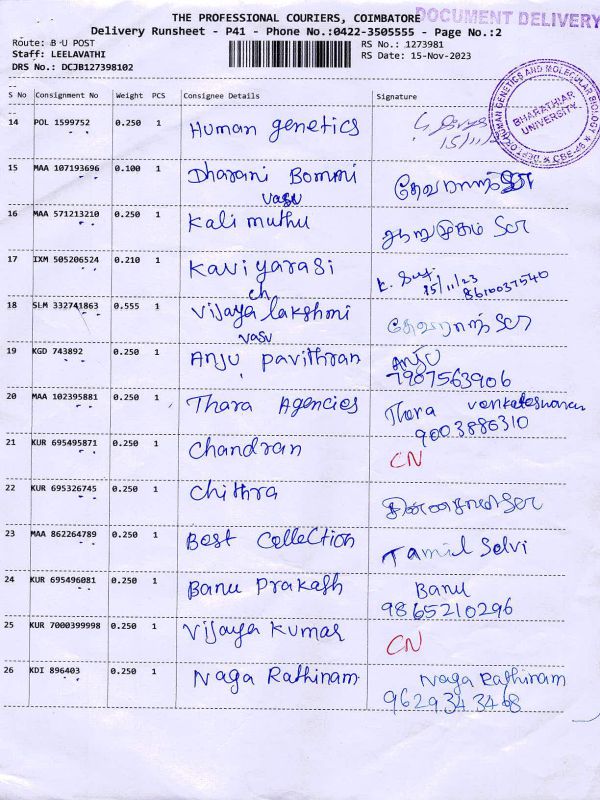 THE PROFESSIONAL COURIERS, COIMBATORE
DOCUMENT DELIVERY
Delivery Runsheet - P41 - Phone No.:0422-3505555 - Page No.:2
Route: B U POST
RS No.: 1273981
Staff: LEELAVATHI
RS Date: 15-Nov-2023
DRS No.: DCJB127398102
S No Consignment No Weight PCS Consignee Details Signature
DEPT. OF HUMAN GENETICS AND MOLECULAR BIOLOGY
BHARATHIAR UNIVERSITY
14 POL 1599752 0.250 1 Human genetics
15/11/2
15 MAA 107193696 0.100 1 Dharani Bommi
vasu
16 MAA 571213210 0.250 1 Kali muthu ஆறுமுகம் SCR
17 IXM 505206524 0.210 1 Kaviyarasi
15/11/23
8610037540
ch
18 SLM 332741863 0.555 1 Vijaya lakshmi
vasu
19 KGD 743892 0.250 1 Anju pavithran Anju
7907563906
20 MAA 102395881 0.250 1 Thara Agencies Thara venkateswaran
9003886310
21 KUR 695495871 0.250 1 Chandran CN
22 KUR 695326745 0.250 1 Chithra
23 MAA 862264789 0.250 1 Best Collection Tamil Selvi
24 KUR 695496081 0.250 1 Banu Prakash Banu
9865210296
25 KUR 7000399998 0.250 1 Vijaya Kumar CN
26 KDI 896403 0.250 1 Naga Rathinam Naga Rathinam
9629343468